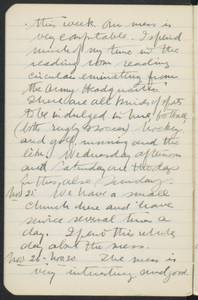 this week. Our mess is
very comfortable. I spend
much of my time in the
reading room reading
circulars eminating from
the Army Headquarters
There are all kinds of sports
to be indulged in here, football
both rugby & soccer, hockey
and golf, running and the
like. Wednesday afternoon
and Saturday are the days
for this, also Sunday.
Nov 25 We have a small
church here and have
service several times a
day. I spent this whole
day about the mess.
Nov 26 - Nov 30. The mess is
very interesting and good